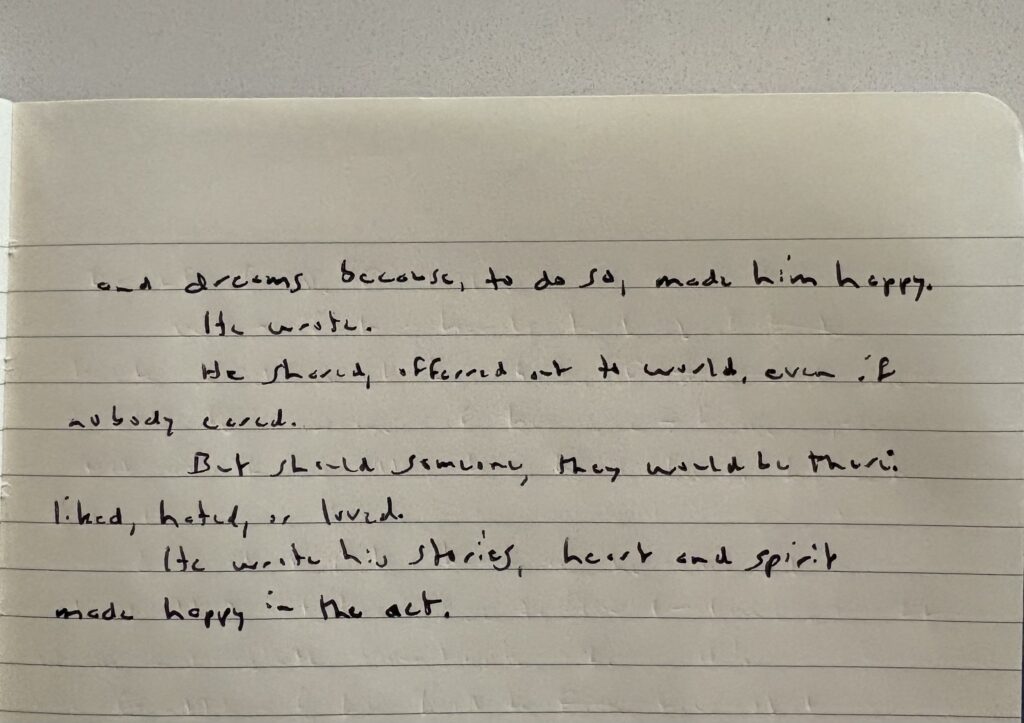 and dreams because, to do so, made him happy.
He wrote.
He shared, offerred out to world, even if
nobody cared.
But should someone, they would be there:
liked, hated, or loved.
He wrote his stories, heart and spirit
made happy in the act.